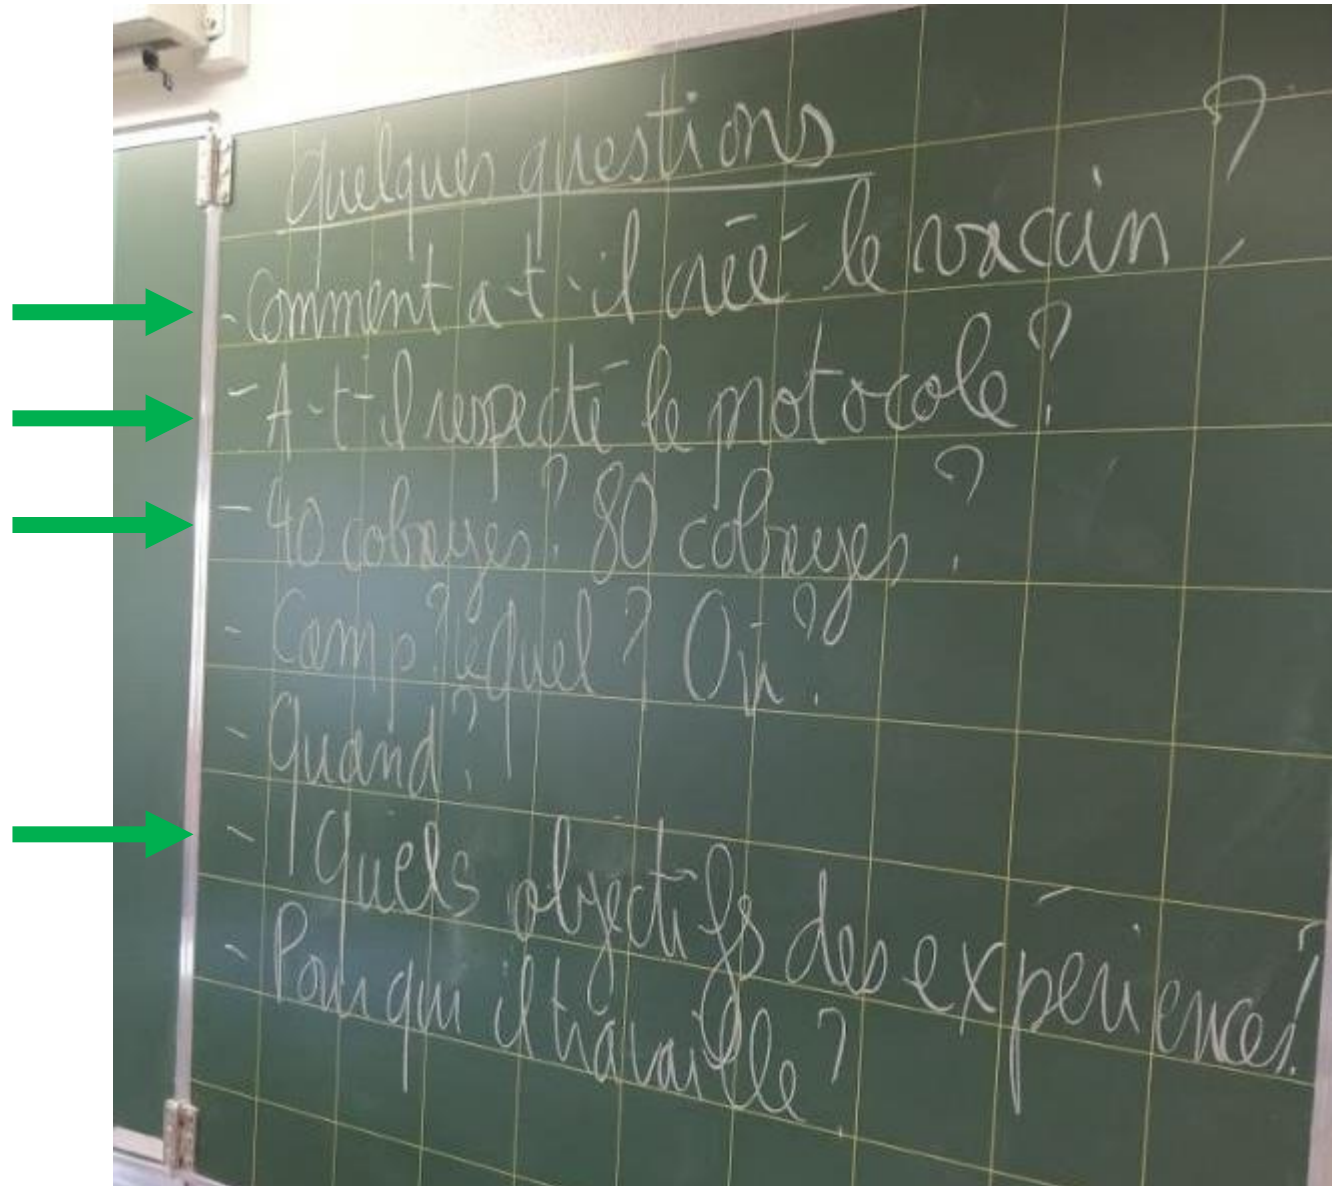 Quelques questions
- Comment a-t-il créé le vaccin ?
- A-t-il respecté le protocole ?
- 40 cobayes ? 80 cobayes ?
- Camp ? lequel ? Où ?
- Quand ?
- Quels objectifs des expériences ?
- Pour qui il travaille ?